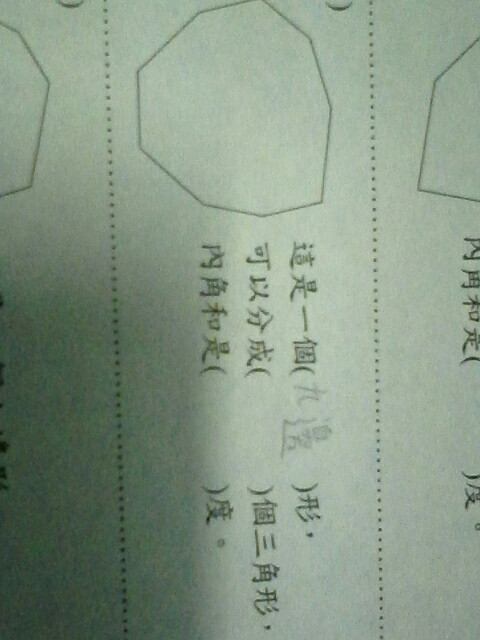 內角和是(  )度。
這是一個(九邊)形，
可以分成(  )個三角形，
內角和是(  )度。